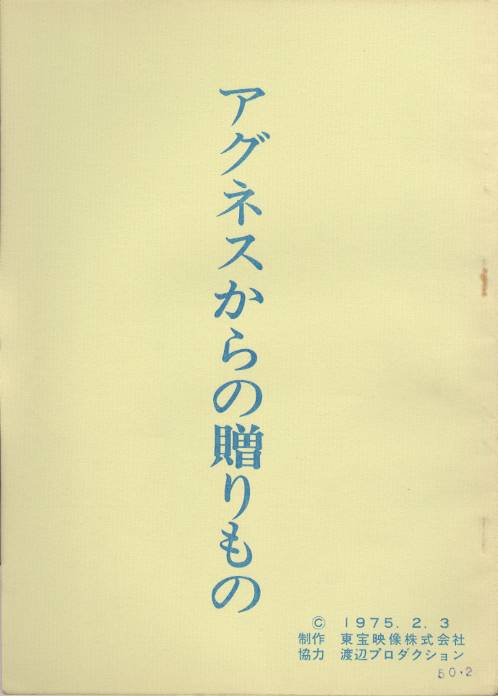 アグネスからの贈りもの
© 1975. 2. 3
制作 東宝映像株式会社
協力 渡辺プロダクション
50·2